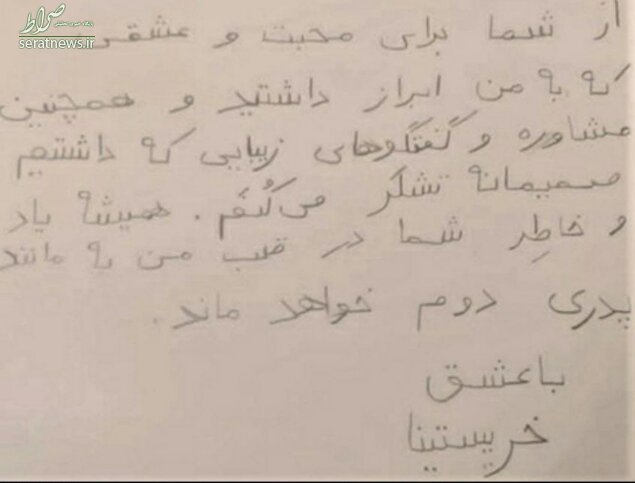 صراط
پایگاه خبری تحلیلی
seratnews.ir
از شما برای محبت و عشقی
که به من ابراز داشتید و همچنین
مشاوره و گفتگوهای زیبایی که داشتیم
صمیمانه تشکر می‌کُنَم. همیشه یاد
و خاطِر شما در قلب من به مانند
پدری دوم خواهد ماند.
با عشق
خریستینا